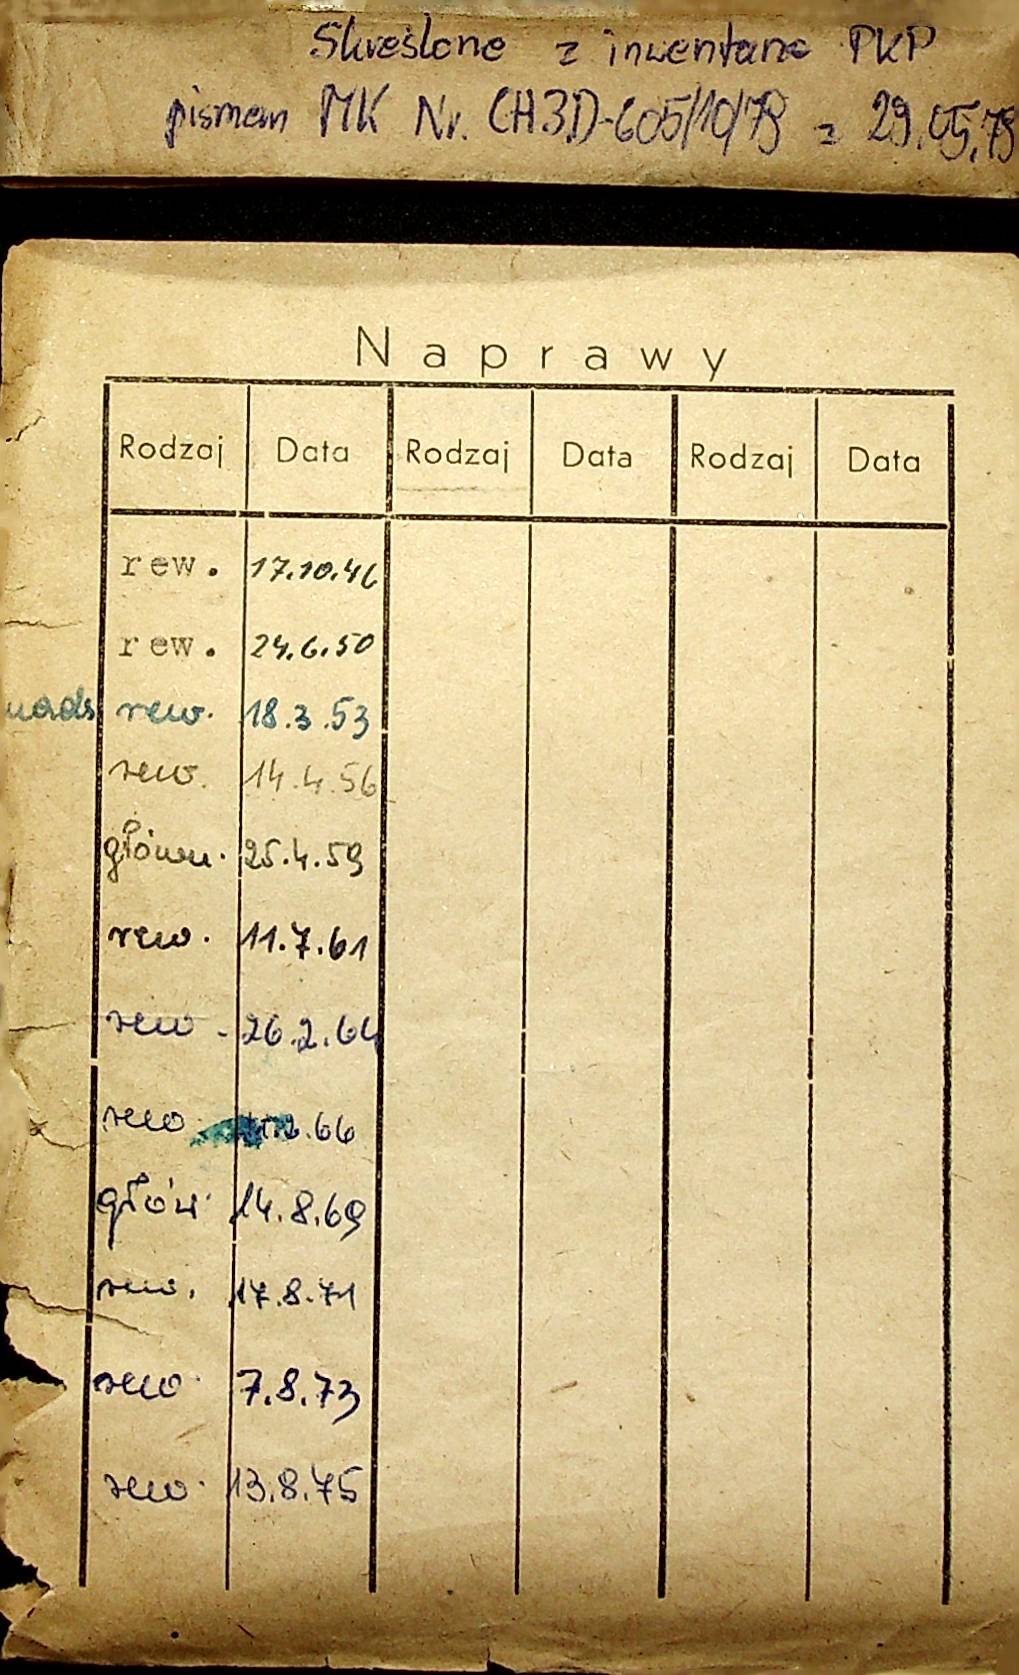 Skreślone z inwentarza PKP
pismem MK Nr. CH3D-605/10/79 z 29.05.79
Naprawy
Rodzaj Data Rodzaj Data Rodzaj Data
rew. 17.10.46
rew. 24.6.50
nads rew. 18.3.53
rew. 14.4.56
główn. 25.4.59
rew. 11.7.61
rew. 26.2.64
rew. .66
głów. 14.8.69
rew. 17.8.71
rew. 7.8.73
rew. 13.8.75